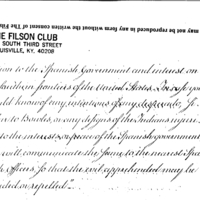 may not be reproduced in any form without the written consent of The Fils
HE FILSON CLUB
SOUTH THIRD STREET
UISVILLE, KY. 40208
ion to the Spanish Government and interest on
southern frontiers of the United States. For
ould know of any
to Bowles, or any designs of the Indians
to the interest or peace of the Spanish government
will communicate the same to the nearest Spa
officers, so that the evil apprehended may be
or repelled."